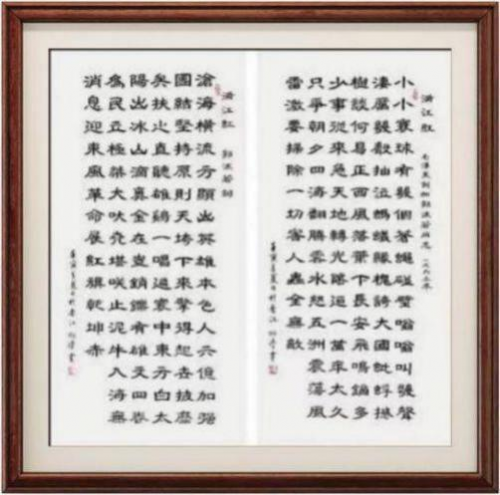 满江红
毛澤東 和郭沫若同志 一九六三年
小小寰球有幾個蒼蠅碰壁嗡嗡叫幾聲
凄厲幾聲抽泣螞蟻緣槐誇大國蚍蜉撼
樹談何易正西風落葉下長安飛鳴鏑多
少事從來急天地轉光陰迫一萬年太久
只爭朝夕四海翻騰雲水怒五洲震蕩風
雷激要掃除一切害人蟲全無敵
满江红
郭沫若詞
滄海橫流方顯出英雄本色人六億加强
團結堅持原則天垮下來擎得起世披靡
矣扶之直聽雄鷄一唱遍寰中東方白太
陽出冰山滴真金在豈銷鑠有雄文四卷
爲民立極桀犬吠堯堪笑止泥牛入海無
消息迎東風革命展紅旗乾坤赤